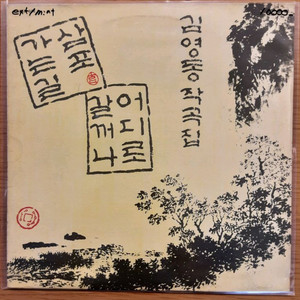 ex+/mint
김영동작곡집
삼포
가는길
어디로
갈꺼나